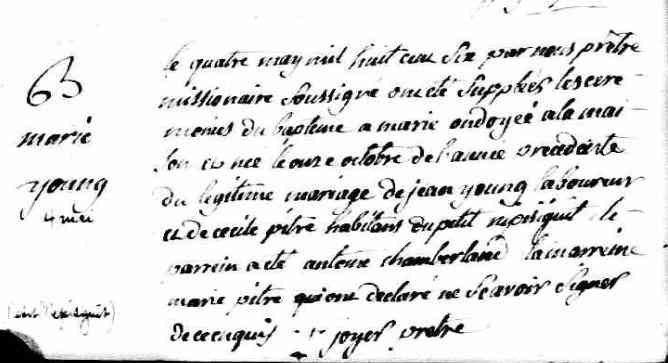 63
marie
young
4 mai
le quatre may mil huit cent six par nous prêtre
missionaire soussigné ont été supplées les cere-
monies du baptême a marie ondoyée a la mai-
son et nee le onze octobre de l'année precedente
du legitime mariage de jean young laboureur
et de cecile pitre habitans du petit nepisiguit le
parrein a été antoine chamberland la marreine
marie pitre qui ont declaré ne sçavoir signer
de ce enquis joyer prêtre